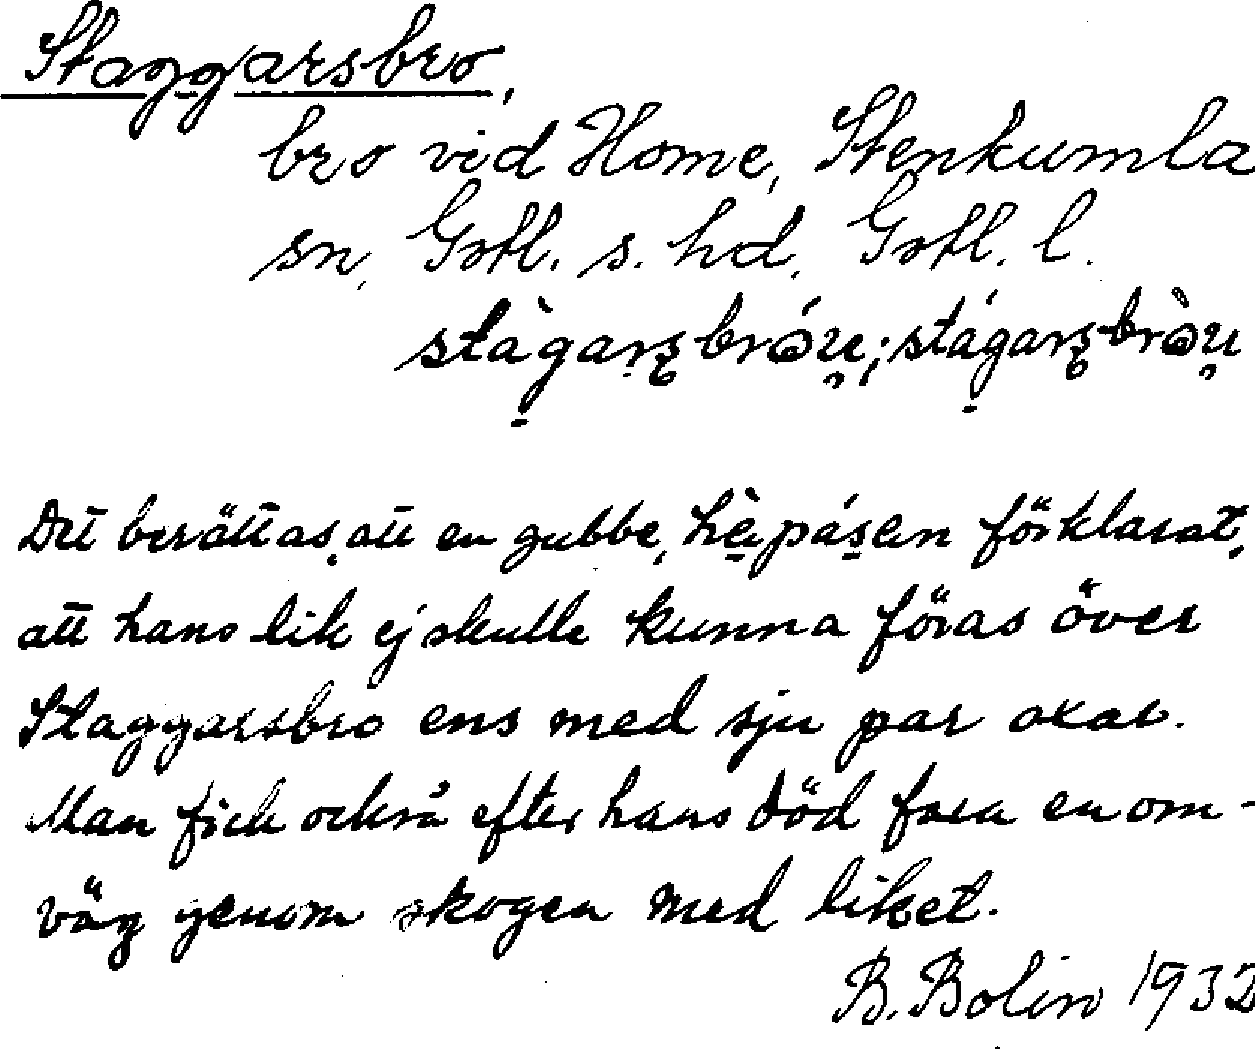 Staggarsbro,
bro vid Home, Stenkumla
sn, Gotl. s. hd, Gotl. l.
Det berättas, att en gubbe, förklarat,
att hans lik ej skulle kunna föras över
Staggarsbro ens med sju par oxar.
Man fick också efter hans död fara en om-
väg genom skogen med liket.
B. Bolin 1932